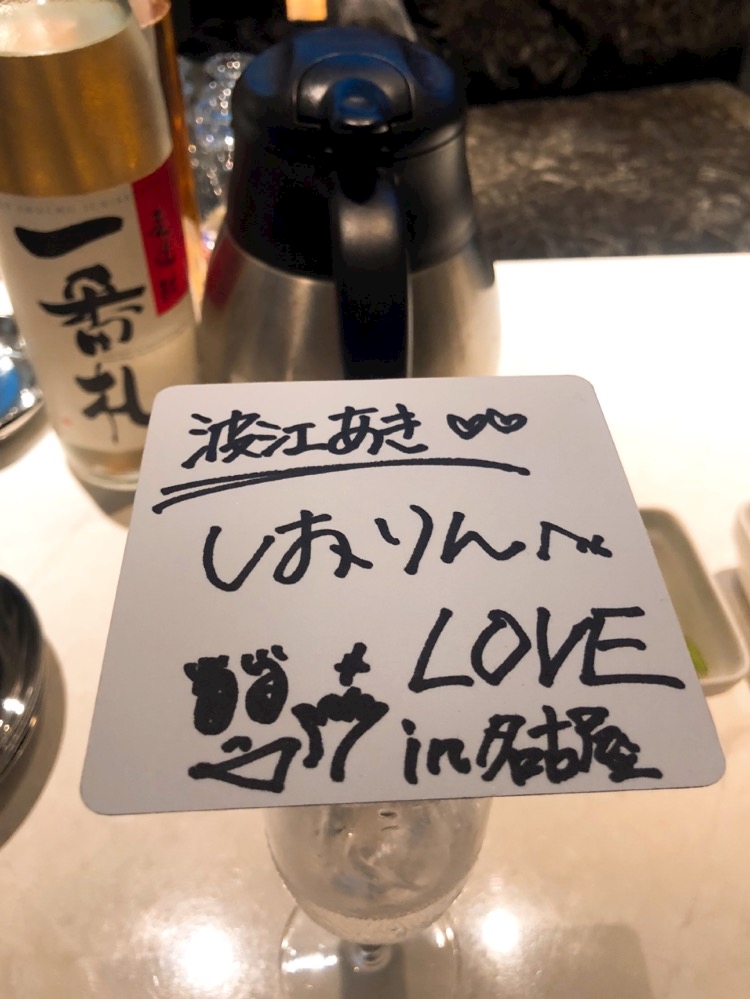 一番札
波江あき♡♡
しおりんへ
LOVE
in名古屋